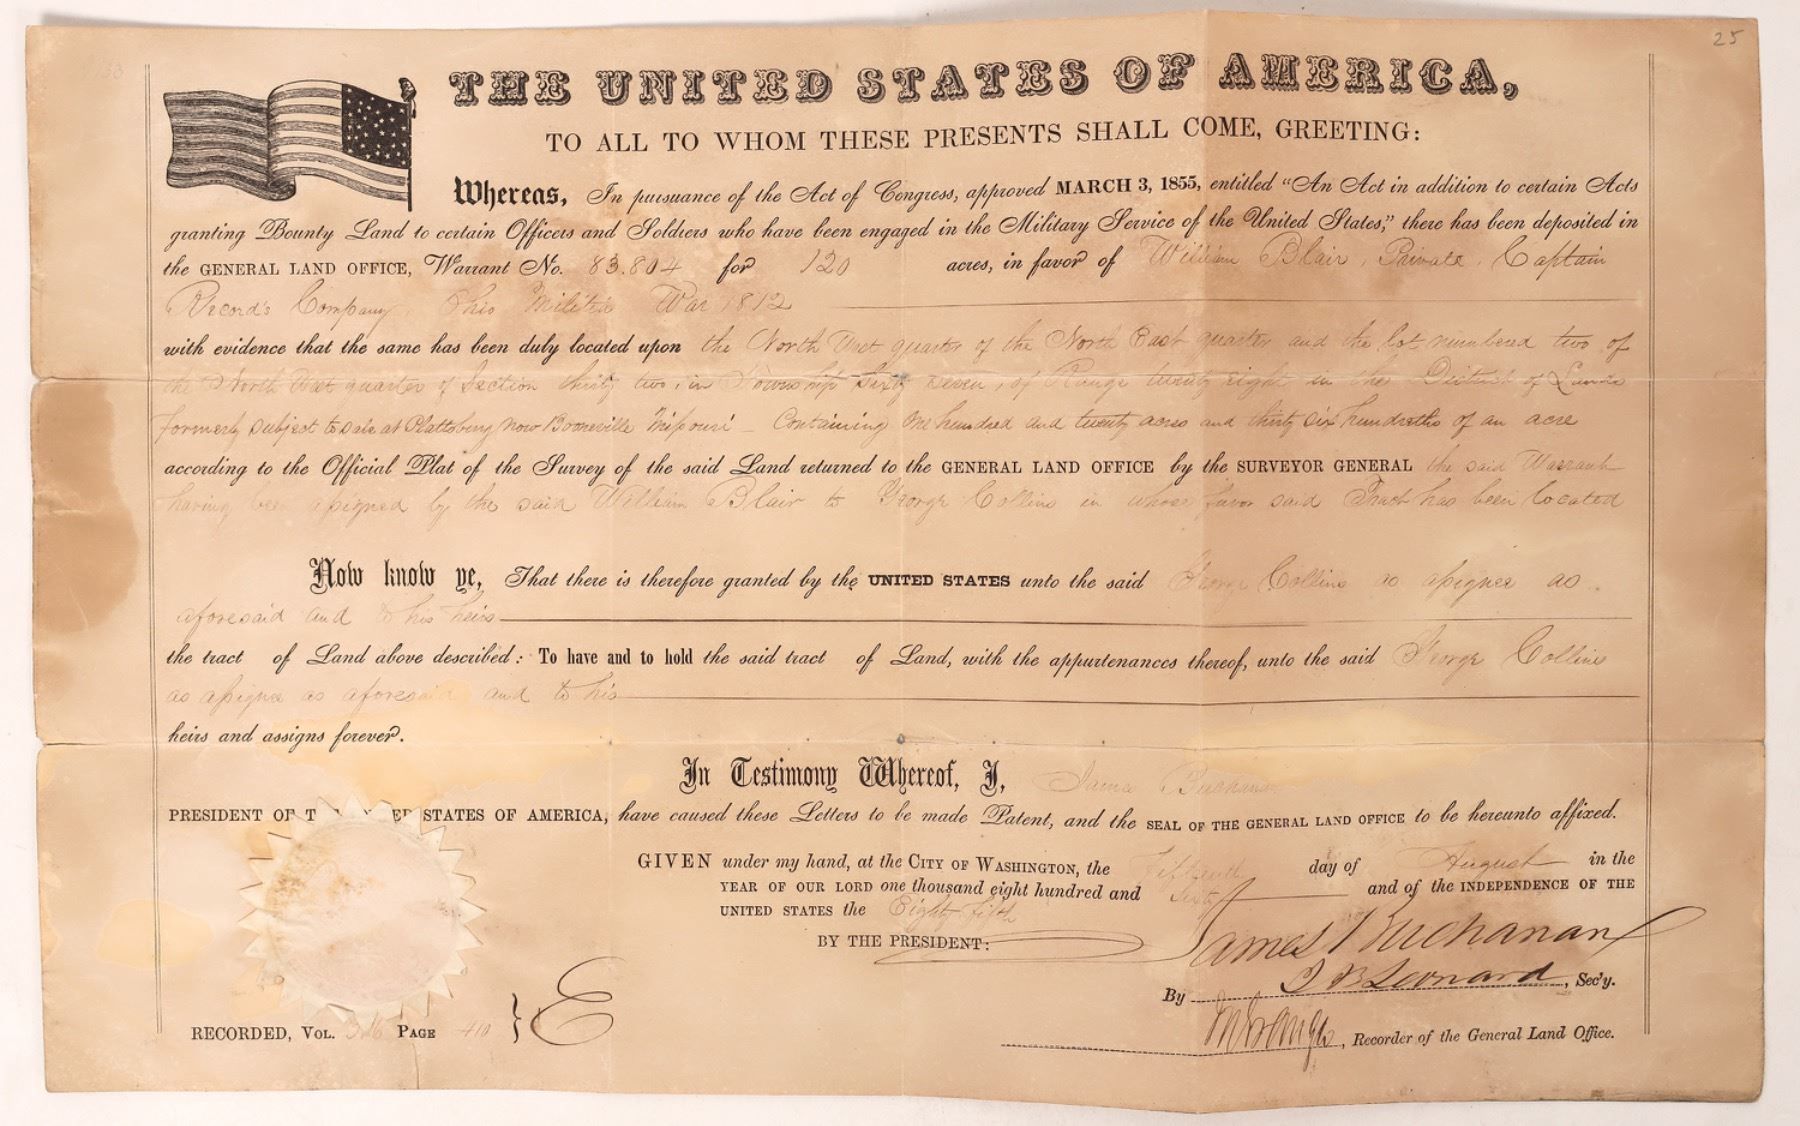 25
THE UNITED STATES OF AMERICA,
TO ALL TO WHOM THESE PRESENTS SHALL COME, GREETING:
Whereas, In pursuance of the Act of Congress, approved MARCH 3, 1855, entitled "An Act in addition to certain Acts
granting Bounty Land to certain Officers and Soldiers who have been engaged in the Military Service of the United States," there has been deposited in
the GENERAL LAND OFFICE, Warrant No. 83.804 for 120 acres, in favor of William Blair, Private, Captain
Record's Company, Ohio Militia War 1812
with evidence that the same has been duly located upon the North West quarter of the North East quarter and the lot numbered two of
the North West quarter of Section thirty two, in Township Sixty seven, of Range twenty eight in the District of Lands
formerly subject to sale at Plattsburg now Booneville Missouri - Containing one hundred and twenty acres and thirty six hundredths of an acre
according to the Official Plat of the Survey of the said Land returned to the GENERAL LAND OFFICE by the SURVEYOR GENERAL the said Warrant
having been assigned by the said William Blair to George Collins in whose favor said Tract has been located
Now know ye, That there is therefore granted by the UNITED STATES unto the said George Collins as assignee as
aforesaid and to his heirs
the tract of Land above described: To have and to hold the said tract of Land, with the appurtenances thereof, unto the said George Collins
as assignee as aforesaid and to his
heirs and assigns forever.
In Testimony Whereof, I, James Buchanan
PRESIDENT OF THE UNITED STATES OF AMERICA, have caused these Letters to be made Patent, and the SEAL OF THE GENERAL LAND OFFICE to be hereunto affixed.
GIVEN under my hand, at the CITY OF WASHINGTON, the fifteenth day of August in the
YEAR OF OUR LORD one thousand eight hundred and Sixty and of the INDEPENDENCE OF THE
UNITED STATES the Eighty fifth
BY THE PRESIDENT: James Buchanan
By J B Leonard, Sec'y.
RECORDED, VOL. PAGE 410 } E
, Recorder of the General Land Office.